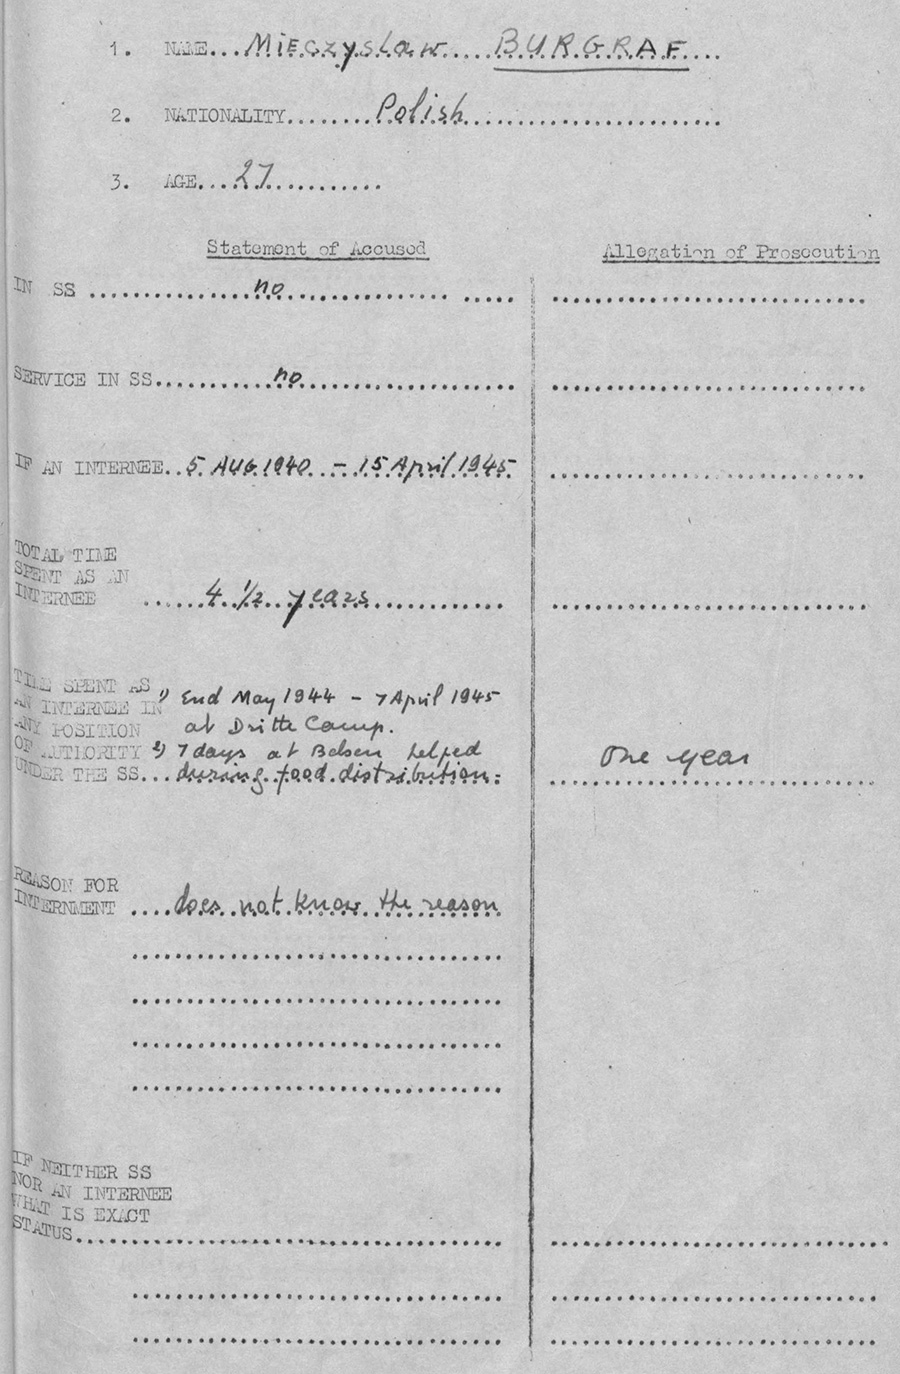 1. NAME...Mieczyslaw.....BURGRAF....
2. NATIONALITY........Polish............................
3. AGE....27............
Statement of Accused
Allegation of Prosecution
IN SS ..................no.................. .....
SERVICE IN SS...........no........................
IF AN INTERNEE..5. AUG.1940..-.15.April.1945.
TOTAL TIME
SPENT AS AN
INTERNEE ......4.1/2..years...............
TIME SPENT AS
AN INTERNEE IN 1) End May 1944 - 7 April 1945
ANY POSITION at Dritte Camp.
OF AUTHORITY 2) 7 days at Belsen helped
UNDER THE SS... during.food.distribution.
One year
REASON FOR
INTERNMENT ....does.not.know.the.reason
IF NEITHER SS
NOR AN INTERNEE
WHAT IS EXACT
STATUS................................................